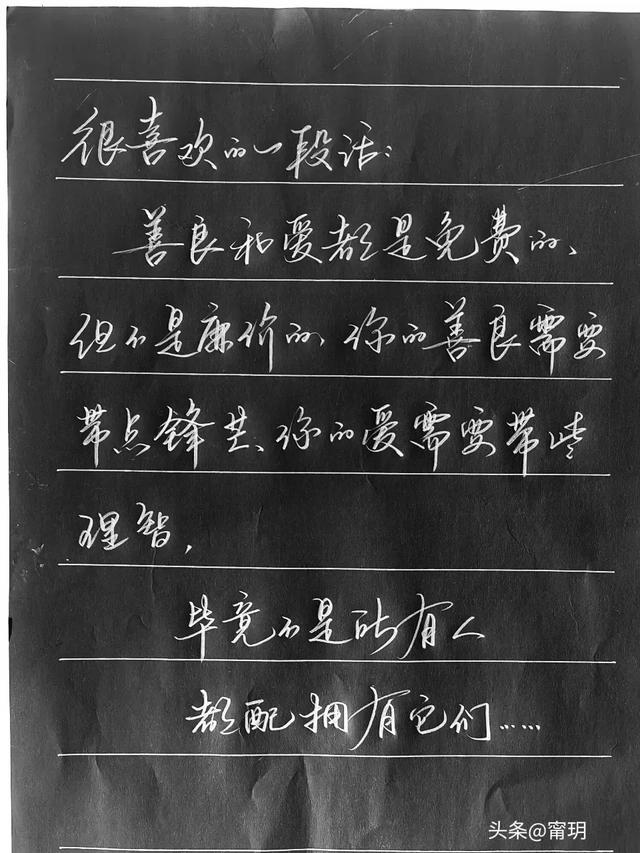 很喜欢的一段话：
善良和爱都是免费的、
但不是廉价的，你的善良需要
带点锋芒、你的爱需要带些
理智，
毕竟不是所有人
都配拥有它们……
头条@甯玥